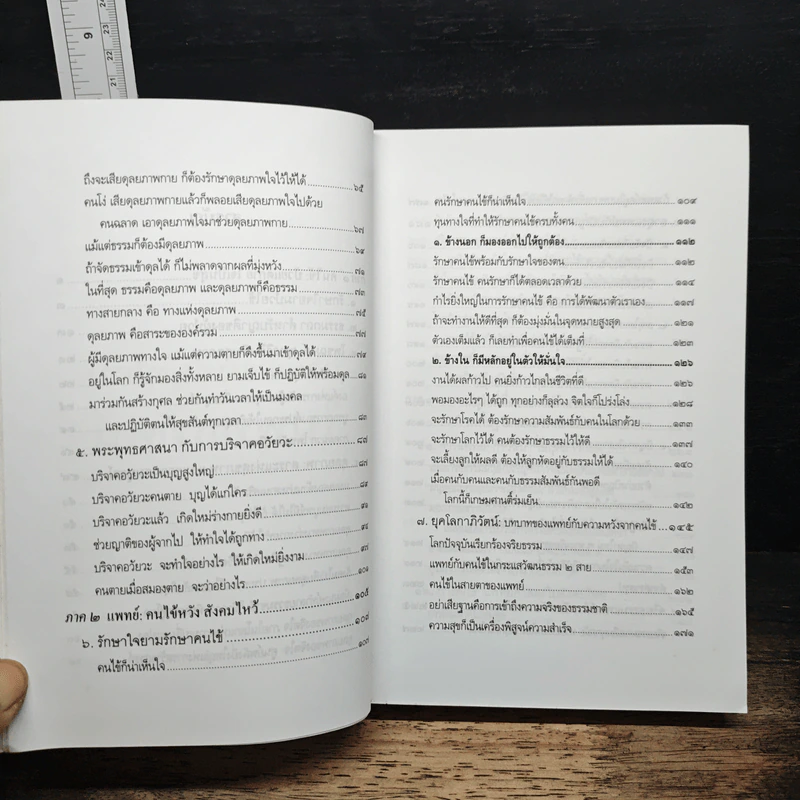 9
24
23
22
21
ถึงจะเสียดุลยภาพกาย ก็ต้องรักษาดุลยภาพใจไว้ให้ได้ ๖๕
คนโง่ เสียดุลยภาพกายแล้วก็พลอยเสียดุลยภาพใจไปด้วย
คนฉลาด เอาดุลยภาพใจมาช่วยดุลยภาพกาย ๖๗
แม้แต่ธรรมก็ต้องมีดุลยภาพ ๖๙
ถ้าจัดธรรมเข้าดุลได้ ก็ไม่พลาดจากผลที่มุ่งหวัง ๗๑
ในที่สุด ธรรมคือดุลยภาพ และดุลยภาพก็คือธรรม ๗๓
ทางสายกลาง คือ ทางแห่งดุลยภาพ ๗๕
ดุลยภาพ คือสาระขององค์รวม ๗๗
ผู้มีดุลยภาพทางใจ แม้แต่ความตายก็ดึงขึ้นมาเข้าดุลได้ ๗๙
อยู่ในโลก ก็รู้จักมองสิ่งทั้งหลาย ยามเจ็บไข้ ก็ปฏิบัติให้พร้อมดุล ๘๑
มาร่วมกันสร้างกุศล ช่วยกันทำวันเวลาให้เป็นมงคล
และปฏิบัติตนให้สุขสันต์ทุกเวลา ๘๓
๕. พระพุทธศาสนา กับการบริจาคอวัยวะ ๘๗
บริจาคอวัยวะเป็นบุญสูงใหญ่ ๘๗
บริจาคอวัยวะคนตาย บุญได้แก่ใคร ๘๙
บริจาคอวัยวะแล้ว เกิดใหม่ร่างกายยิ่งดี ๙๑
ช่วยญาติของผู้จากไป ให้ทำใจได้ถูกทาง ๙๔
บริจาคอวัยวะ จะทำใจอย่างไร ให้เกิดใหม่ยิ่งงาม ๙๗
คนตายเมื่อสมองตาย จะว่าอย่างไร ๑๐๑
ภาค ๒ แพทย์: คนไข้หวัง สังคมไหว้ ๑๐๕
๖. รักษาใจยามรักษาคนไข้ ๑๐๗
คนไข้ก็น่าเห็นใจ ๑๐๗
คนรักษาคนไข้ก็น่าเห็นใจ ๑๐๙
ทุนทางใจที่ทำให้รักษาคนไข้ครบทั้งคน ๑๑๑
๑. ข้างนอก ก็มองออกไปให้ถูกต้อง ๑๑๒
รักษาคนไข้พร้อมกับรักษาใจของตน ๑๑๒
รักษาคนไข้ คนรักก็ได้ตลอดเวลาด้วย ๑๑๔
กำไรยิ่งใหญ่ในการรักษาคนไข้ คือ การได้พัฒนาตัวเราเอง ๑๑๗
ถ้าจะทำงานให้ดีที่สุด ก็ต้องมุ่งมั่นในจุดหมายสูงสุด ๑๒๑
ตัวเองเต็มแล้ว ก็เลยทำเพื่อคนไข้ได้เต็มที่
๒. ข้างใน ก็มีหลักอยู่ในตัวให้มั่นใจ ๑๒๖
งานได้ผลก้าวไป คนยิ่งก้าวไกลในชีวิตที่ดี ๑๒๖
พอมองอะไรๆ ได้ถูก ทุกอย่างก็ลุล่วง จิตใจก็โปร่งโล่ง ๑๒๘
จะรักษาโรคได้ ต้องรักษาความสัมพันธ์กับคนในโลกด้วย ๑๓๓
จะรักษาโลกไว้ได้ คนต้องรักษาธรรมไว้ให้ดี ๑๓๗
จะเลี้ยงลูกให้ผลดี ต้องให้ลูกหัดอยู่กับธรรมให้ได้ ๑๔๐
เมื่อคนกับคนและคนกับธรรมสัมพันธ์กันพอดี
โลกนี้ก็เกษมศานติ์ร่มเย็น ๑๔๒
๗. ยุคโลกาภิวัตน์: บทบาทของแพทย์กับความหวังจากคนไข้ ๑๔๕
โลกปัจจุบันเรียกร้องจริยธรรม ๑๔๗
แพทย์กับคนไข้ในกระแสวัฒนธรรม ๒ สาย ๑๕๓
คนไข้ในสายตาของแพทย์ ๑๖๒
อย่าเสียฐานคือการเข้าถึงความจริงของธรรมชาติ ๑๖๕
ความสุขก็เป็นเครื่องพิสูจน์ความสำเร็จ ๑๗๑